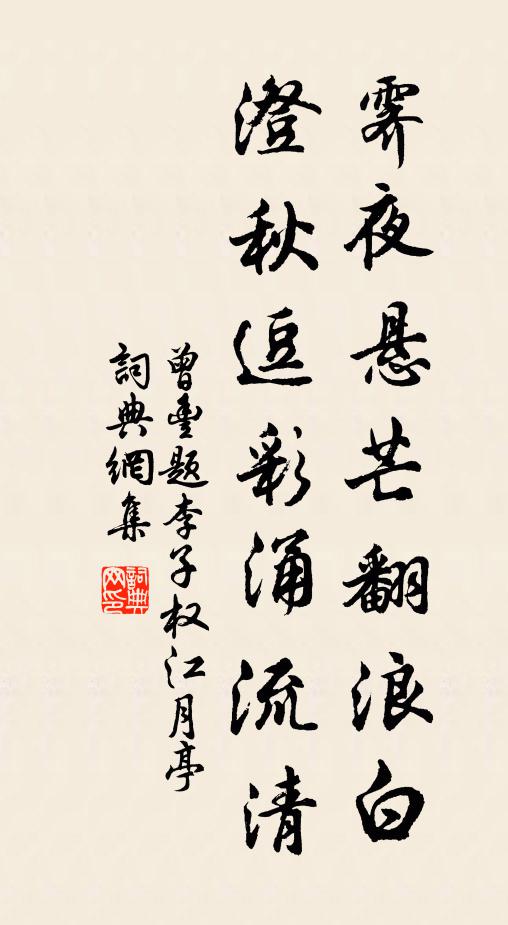 霽夜悬芒翻浪白
澄秋逗彩涌流清
曾豐题李子权江月亭
詞典網集
詞典
网印